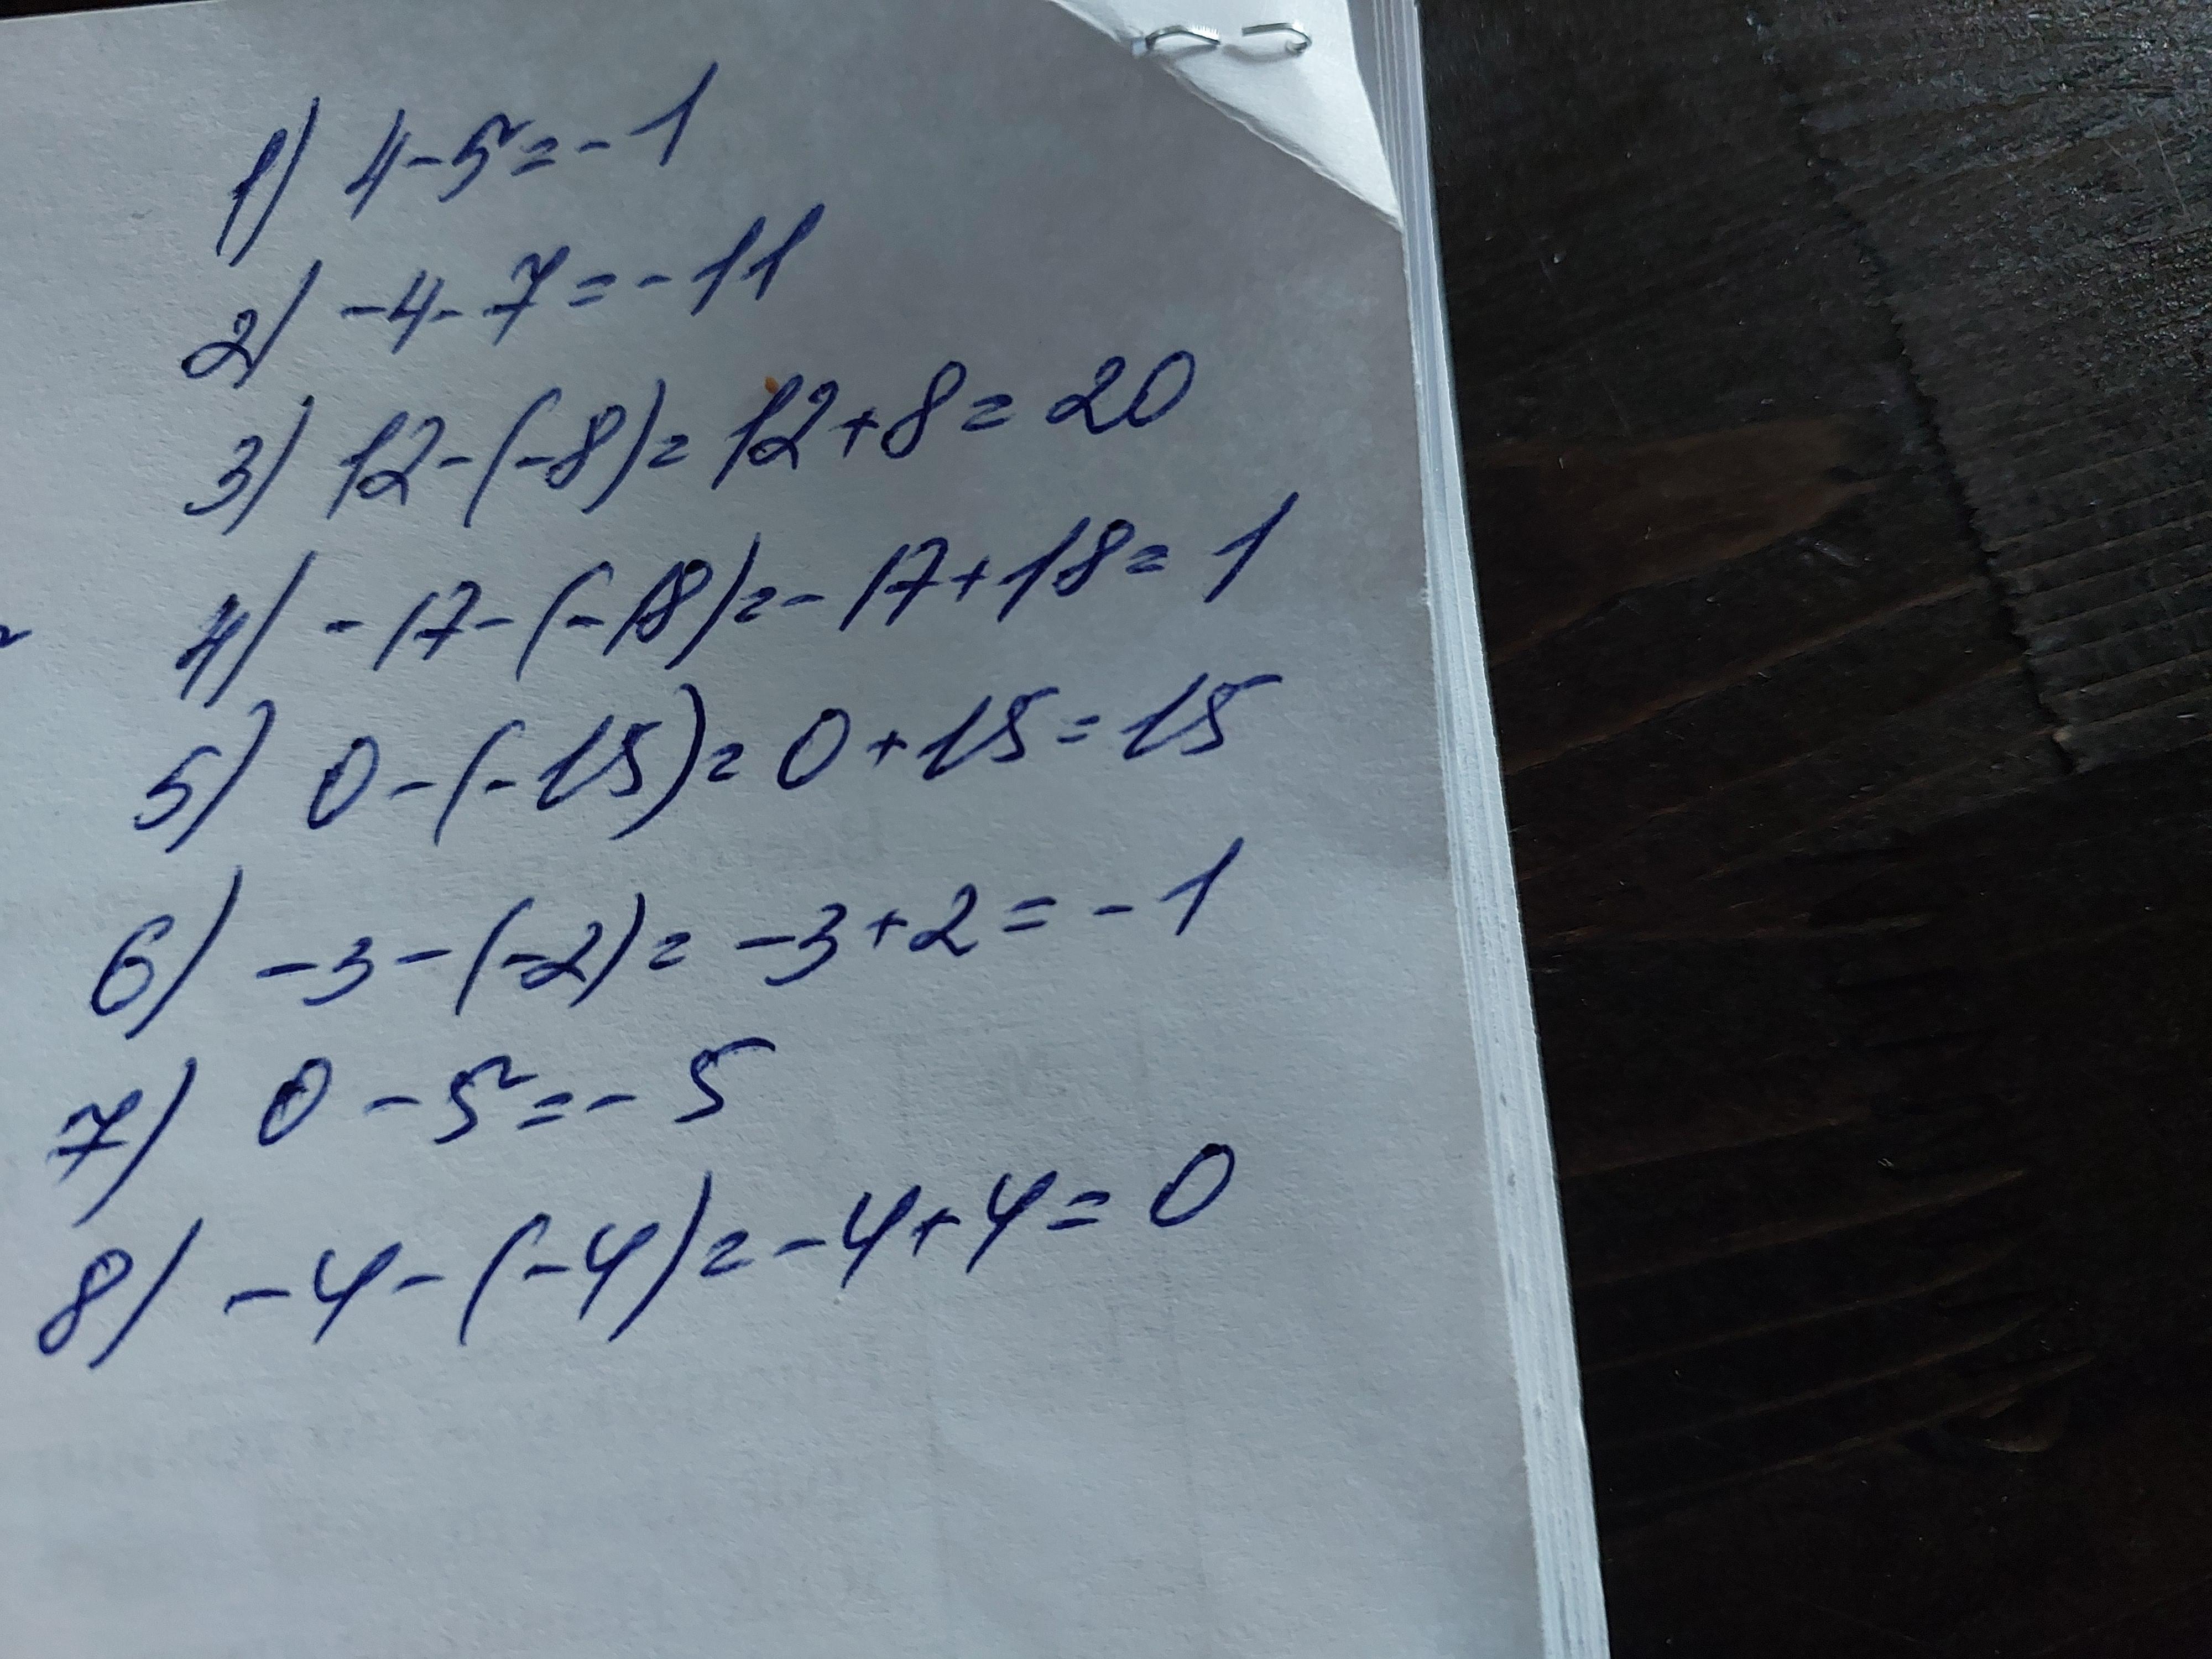 1) 4-5=-1
2) -4-7=-11
3) 12-(-8)=12+8=20
4) -17-(-18)=-17+18=1
5) 0-(-15)=0+15=15
6) -3-(-2)=-3+2=-1
7) 0-5=-5
8) -4-(-4)=-4+4=0